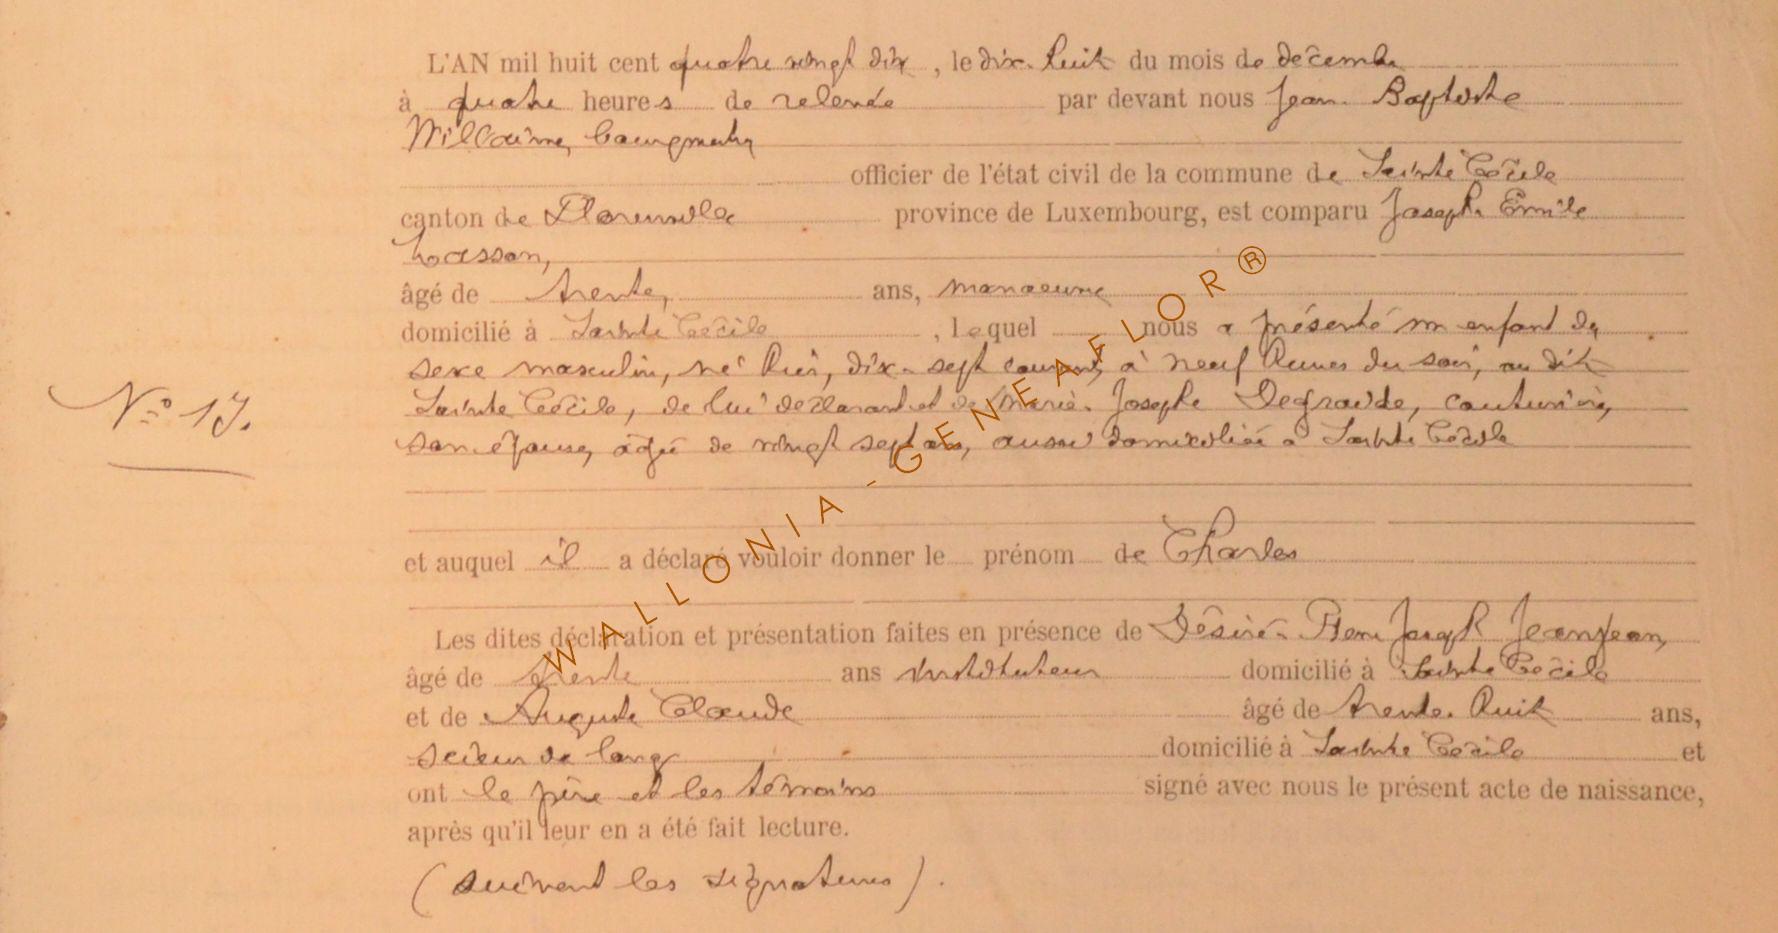 L'AN mil huit cent quatre vingt dix, le dix-huit du mois de décembre
à quatre heures de relevée par devant nous Jean-Baptiste
Willaime, bourgmestre
officier de l'état civil de la commune de Sainte Cécile
canton de Florenville province de Luxembourg, est comparu Joseph Emile
Lasson,
âgé de trente, ans, manoeuvre
domicilié à Sainte Cécile, lequel nous a présenté un enfant de
sexe masculin, né hier, dix-sept courant, à neuf heures du soir, au dit
Sainte Cécile, de lui déclarant et de Marie-Josephe Degraide, couturière,
son épouse, âgée de vingt sept ans, aussi domiciliée à Sainte Cécile
N° 17.
et auquel il a déclaré vouloir donner le prénom de Charles
Les dites déclaration et présentation faites en présence de Désiré-Henri Joseph Jeanjean,
âgé de trente ans instituteur domicilié à Sainte Cécile
et de Auguste Claude âgé de trente-huit ans,
scieur de long domicilié à Sainte Cécile et
ont le père et les témoins signé avec nous le présent acte de naissance,
après qu'il leur en a été fait lecture.
(suivent les signatures).
WALLONIA-GENEAFLOR®